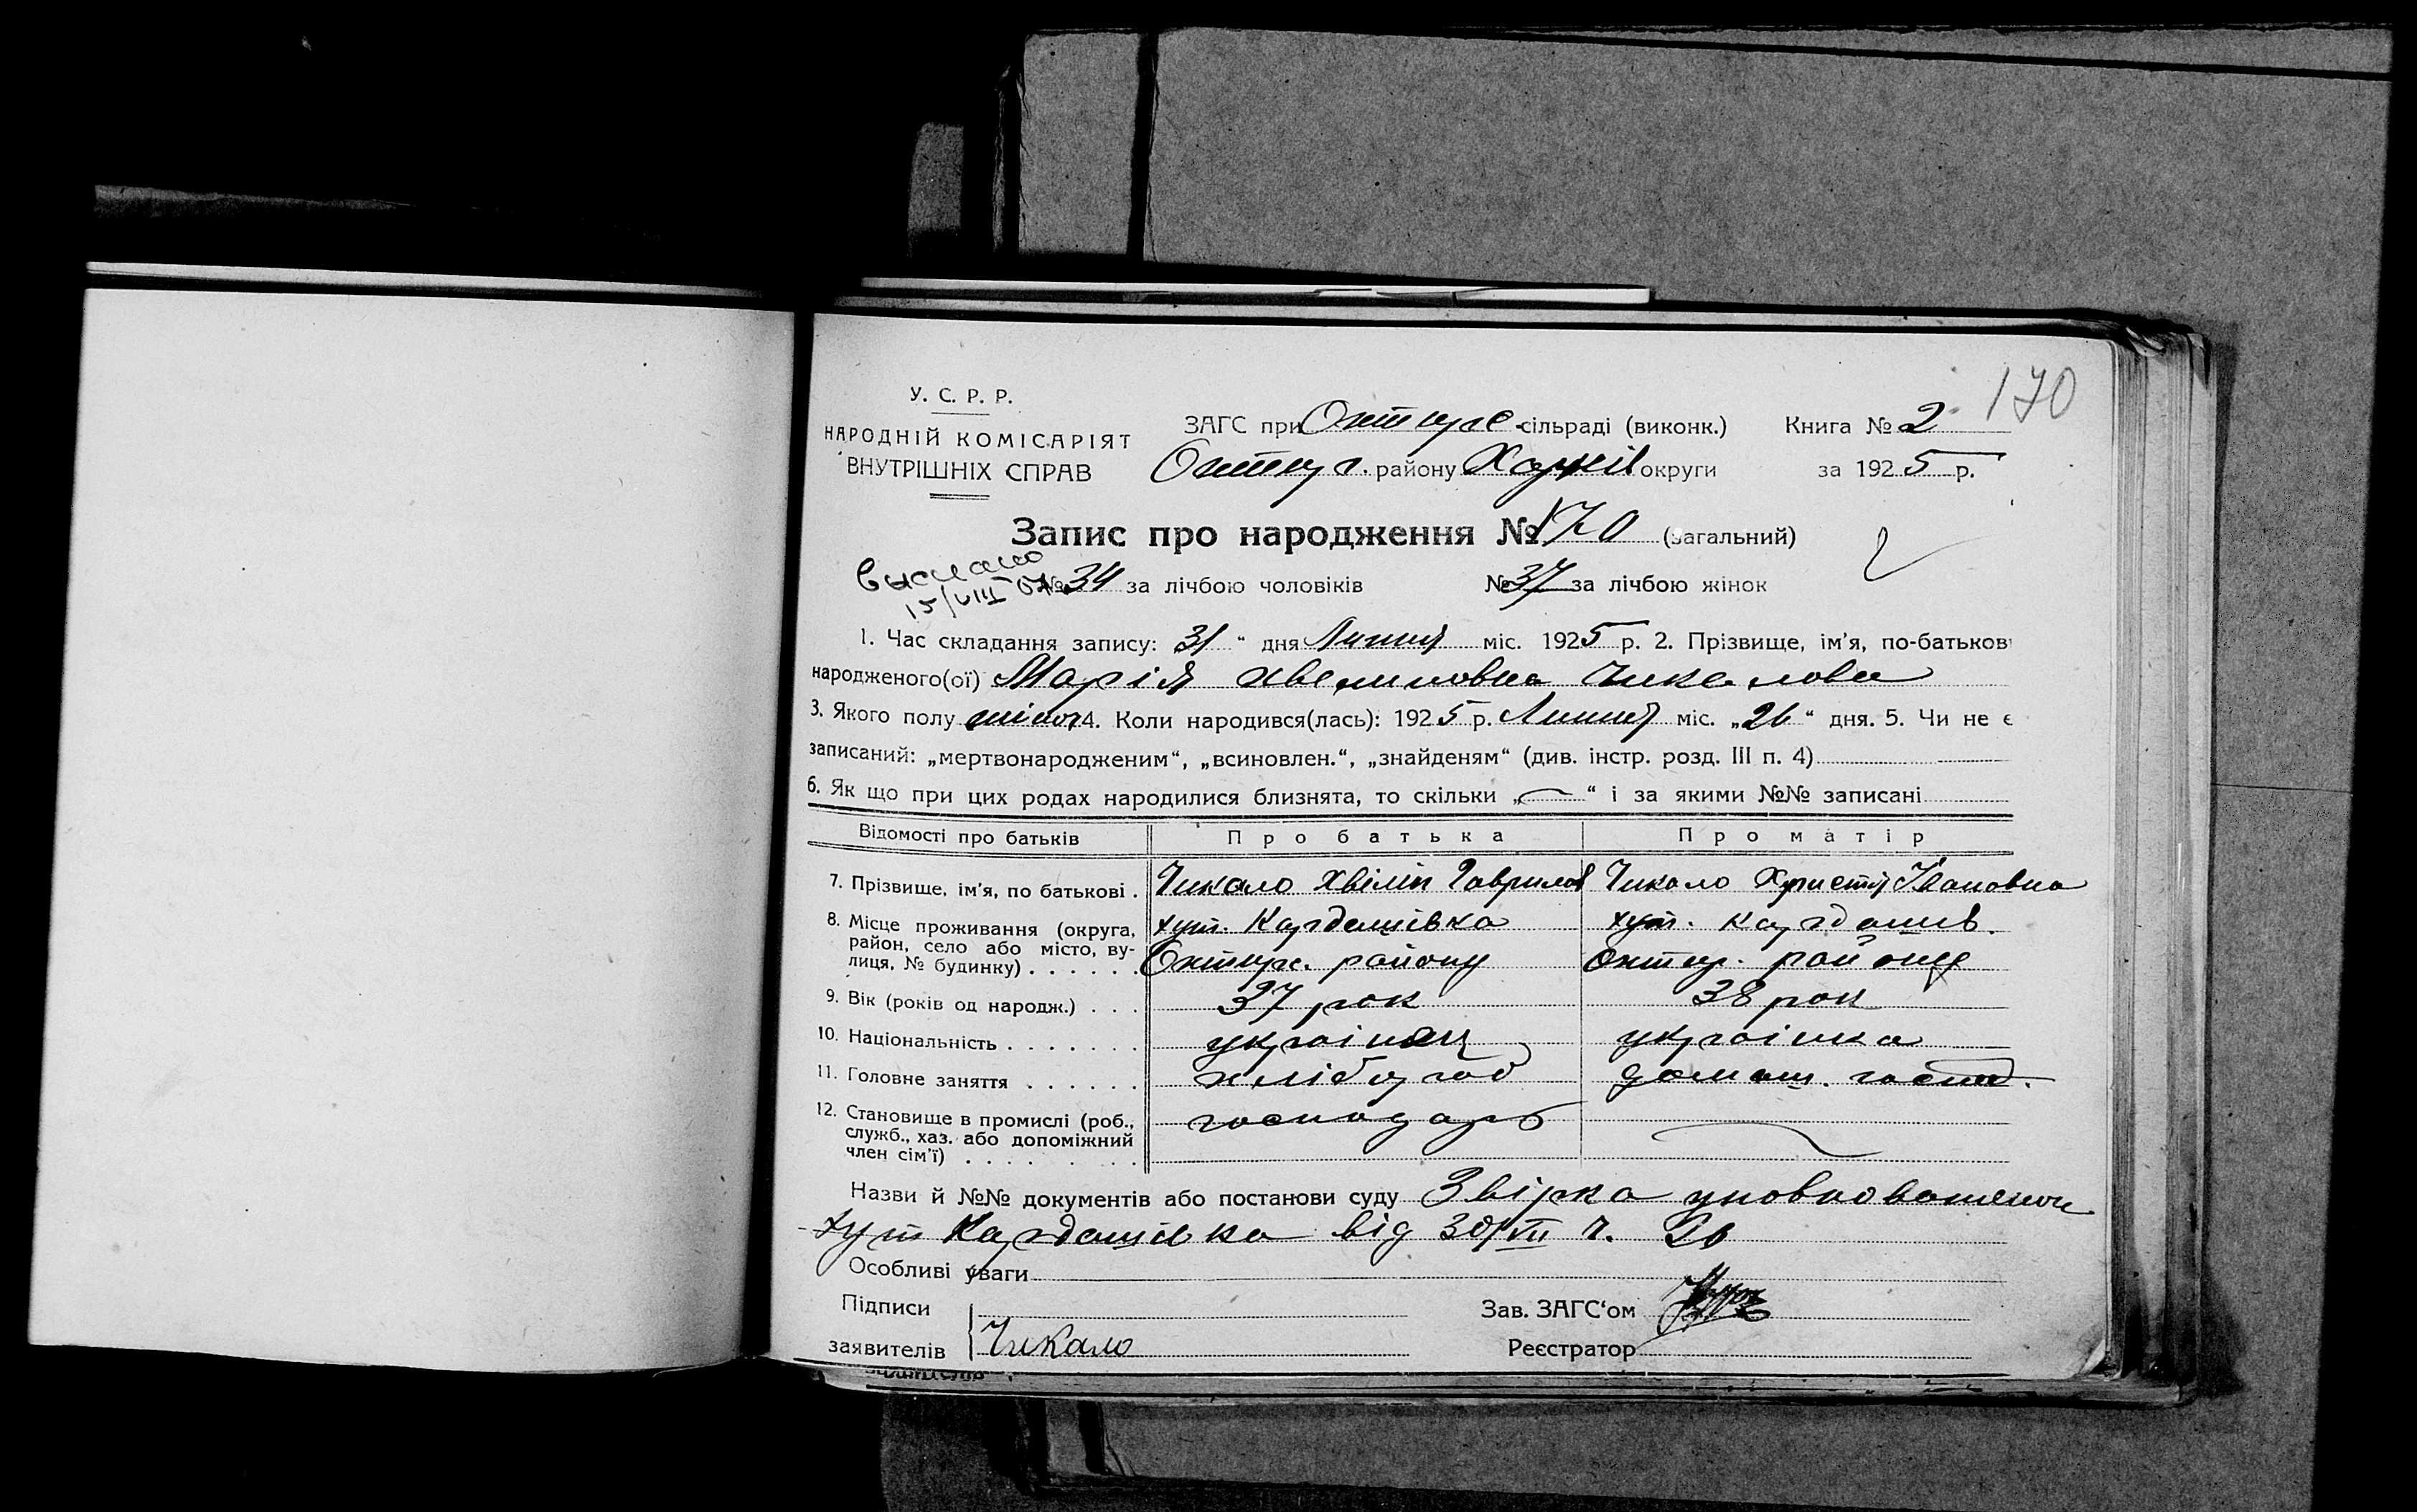 170
У. С. Р. Р.
НАРОДНІЙ КОМІСАРІЯТ
ВНУТРІШНІХ СПРАВ
ЗАГС при Охтирс. сільраді (виконк.) Книга № 2
Охтир. району Харків округи за 1925 р.
Запис про народження № 170 (загальний)
15/VIII
№ 34 за лічбою чоловіків № 37 за лічбою жінок
1. Час складання запису: 31 " дня Липня міс. 1925 р. 2. Прізвище, ім'я, по-батькові
народженого(ої) Марія Хвелиповна Чикалова
3. Якого полу жіноч 4. Коли народився(лась): 1925 р. Липня міс. „26" дня. 5. Чи не є
записаний: „мертвонародженим", „всиновлен.", „знайденям" (див. інстр. розд. III п. 4)
6. Як що при цих родах народилися близнята, то скільки „—" і за якими №№ записані
Відомості про батьків Про батька Про матір
7. Прізвище, ім'я, по батькові . Чикало Хвіліп Гаврилов Чикало Христя Івановна
8. Місце проживання (округа, район, село або місто, вулиця, № будинку) . . . . . . хут. Кардашівка Охтирс. району хут. Кардашів. Охтир. району
9. Вік (років од народж.) . . . 37 рок 38 рок
10. Національність . . . . . . . українец українка
11. Головне заняття . . . . . . хлібороб домаш. господ.
12. Становище в промислі (роб., служб., хаз. або допоміжний член сім'ї) . . . . . . . господарь
Назви й №№ документів або постанови суду Звірка уповноваженого
хут Кардашівка від 30/VII ч. 26
Особливі уваги
Підписи Зав. ЗАГС'ом
заявителів Чикало Реєстратор